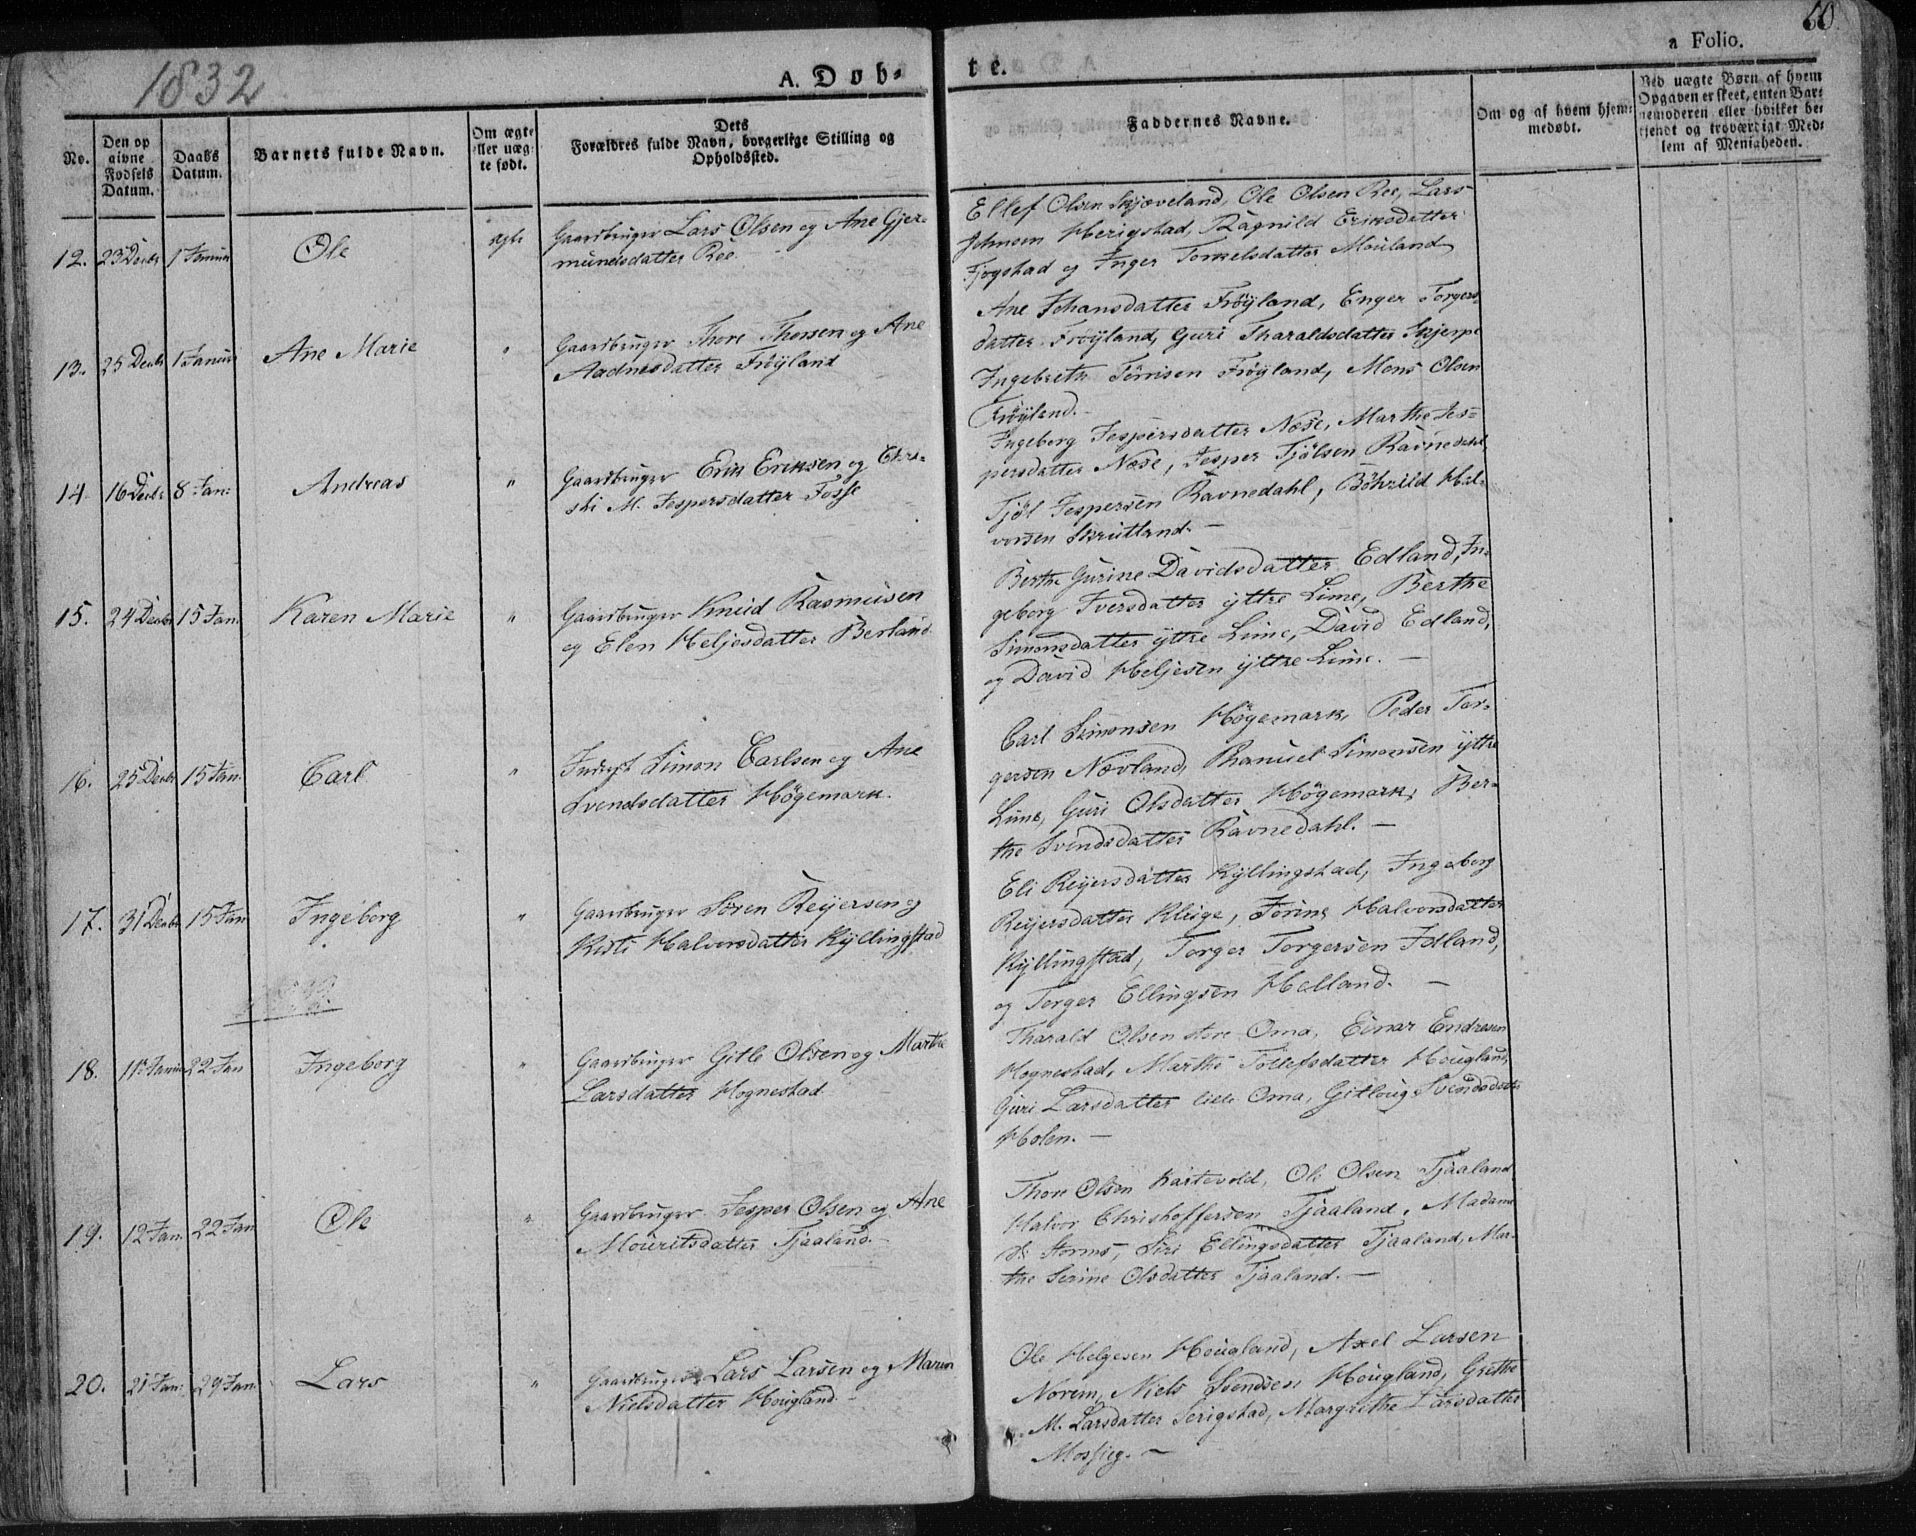 1832
A. Døb-
te.
a Folio.
60.
No.
Den op
givne
Fødsels
Datum.
Daabs
Datum.
Barnets fulde Navn.
Om ægte
eller uæg-
te født.
Dets
Forældres fulde Navn, borgerlige Stilling og
Opholdssted.
Faddernes Navne.
Om og af hvem hjem-
medøbt.
Ved uægte Børn af hvem
Opgaven er skeet, enten Bar-
nemoderen eller hvilket be-
kjendt og troværdigt Med-
lem af Menigheden.
12. 23 Decbr 1 Januar Ole ægte
Gaardbruger Lars Olsen og Ane Gjer-
mundsdatter Ree.
Ellef Olsen Skjæveland, Ole Olsen Ree, Lars
Johnsen Herigstad, Ragnild Eriksdatter
Fjogstad og Inger Torkelsdatter Mauland
13. 25 Decbr 1 Januar Ane Marie "
Gaardbruger Thore Thorsen og Ane
Aadnesdatter Frøyland
Ane Johansdatter Frøyland, Enger Torgers-
datter Frøyland, Guri Tharaldsdatter Skjerpe
Ingebreth Tørrisen Frøyland, Mons Olsen
Frøyland.-
14. 16 Decbr 8 Jan: Andreas "
Gaardbruger Erik Eriksen og Chri-
sti M. Jespersdatter Fosse
Ingeborg Jespersdatter Næse, Marthe Jes-
persdatter Næse, Jesper Tjølsen Ravnedahl
Tjøl Jespersen Ravnedahl, Bøhrild Hal-
vorsen Skrutland.-
15. 24 Decbr 15 Jan. Karen Marie "
Gaardbruger Knud Rasmusen
og Elen Heljesdatter Berland
Berthe Gurine Davidsdatter Edland, In-
geborg Iversdatter yttre Lime, Berthe
Simonsdatter yttre Lime, David Edland,
og David Heljesen yttre Lime. -
16. 25 Decbr 15 Jan. Carl "
Inderst Simon Carlsen og Ane
Svendsdatter Høgemark.
Carl Simonsen Høgemark, Peder Tor-
gersen Nævland, Thanuel Simonsen yttre
Lime, Guri Olsdatter Høgemark, Ber-
the Svendsdatter Ravnedahl. -
17. 31 Decbr 15 Jan Ingeborg "
Gaardbruger Søren Reiersen og
Kisti Halvorsdatter Kyllingstad
Eli Reyersdatter Kyllingstad, Ingeborg
Reyersdatter Kluge, Jorine Halvorsdatter
Kyllingstad, Torger Torgersen Idland,
og Torger Ellingsen Helland. -
18. 11 Januar 22 Jan Ingeborg "
Gaardbruger Gitle Olsen og Marthe
Larsdatter Hognestad
Tharald Olsen store Oma, Einar Endresen
Hognestad, Marthe Tollefsdatter Hougland,
Guri Larsdatter lille Oma, Gitloug Svendsdatter
Holen. -
19. 12 Jan. 22 Jan Ole "
Gaardbruger Jesper Olsen og Ane
Mouritsdatter Tjaaland.-
Thore Olsen Kartevold, Ole Olsen Tjaaland
Halvor Christoffersen Tjaaland, Madame
Storms, Siri Ellingsdatter Tjaaland, Mar-
the Serine Olsdatter Tjaaland. -
20. 21 Jan: 29 Jan. Lars "
Gaardbruger Lars Larsen og Maren
Nielsdatter Hougland. -
Ole Helgesen Hougland, Axel Larsen
Norem, Niels Svendsen Hougland, Grethe
M. Larsdatter Serigstad, Margrethe Larsdatter
Mossige. -